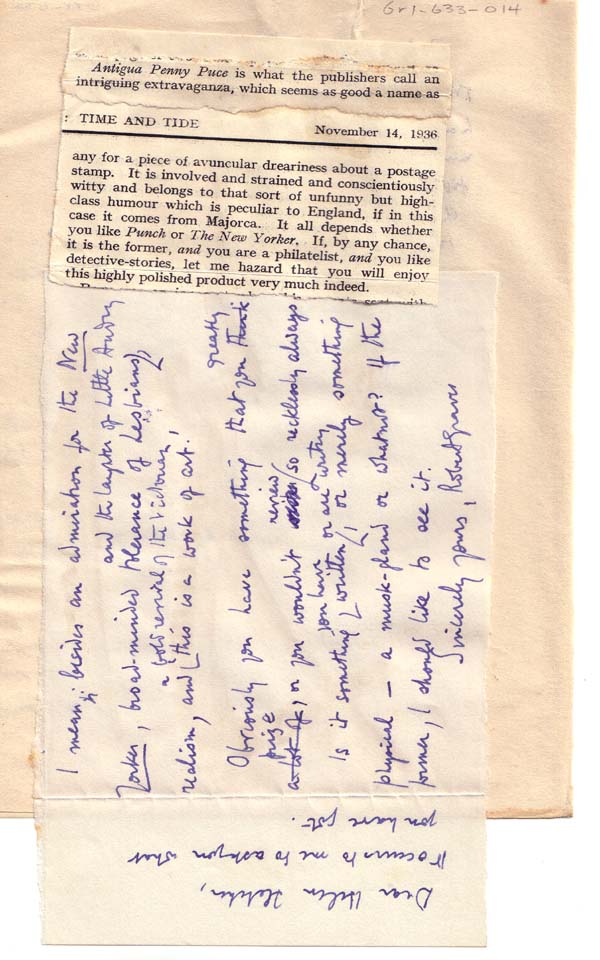 6r1-633-014
Antigua Penny Puce is what the publishers call an
intriguing extravaganza, which seems as good a name as
: TIME AND TIDE November 14, 1936
any for a piece of avuncular dreariness about a postage
stamp. It is involved and strained and conscientiously
witty and belongs to that sort of unfunny but high-
class humour which is peculiar to England, if in this
case it comes from Majorca. It all depends whether
you like Punch or The New Yorker. If, by any chance,
it is the former, and you are a philatelist, and you like
detective-stories, let me hazard that you will enjoy
this highly polished product very much indeed.
Dear Helen Fletcher,
It occurs to me to ask you what
you have got.
I mean, besides an admiration for the New
Yorker, and the laughter of Little Audrey
broad-minded tolerance of Lesbians,
a bold revival of the Victorian
realism, and 'this is a work of art.'
Obviously you have something that you greatly think
prize a lot of, or you wouldn't review so recklessly always
Is it something you have written, or are writing or merely something
physical — a musk-gland or whatnot? If the
former, I should like to see it.
Sincerely yours, Robert Graves